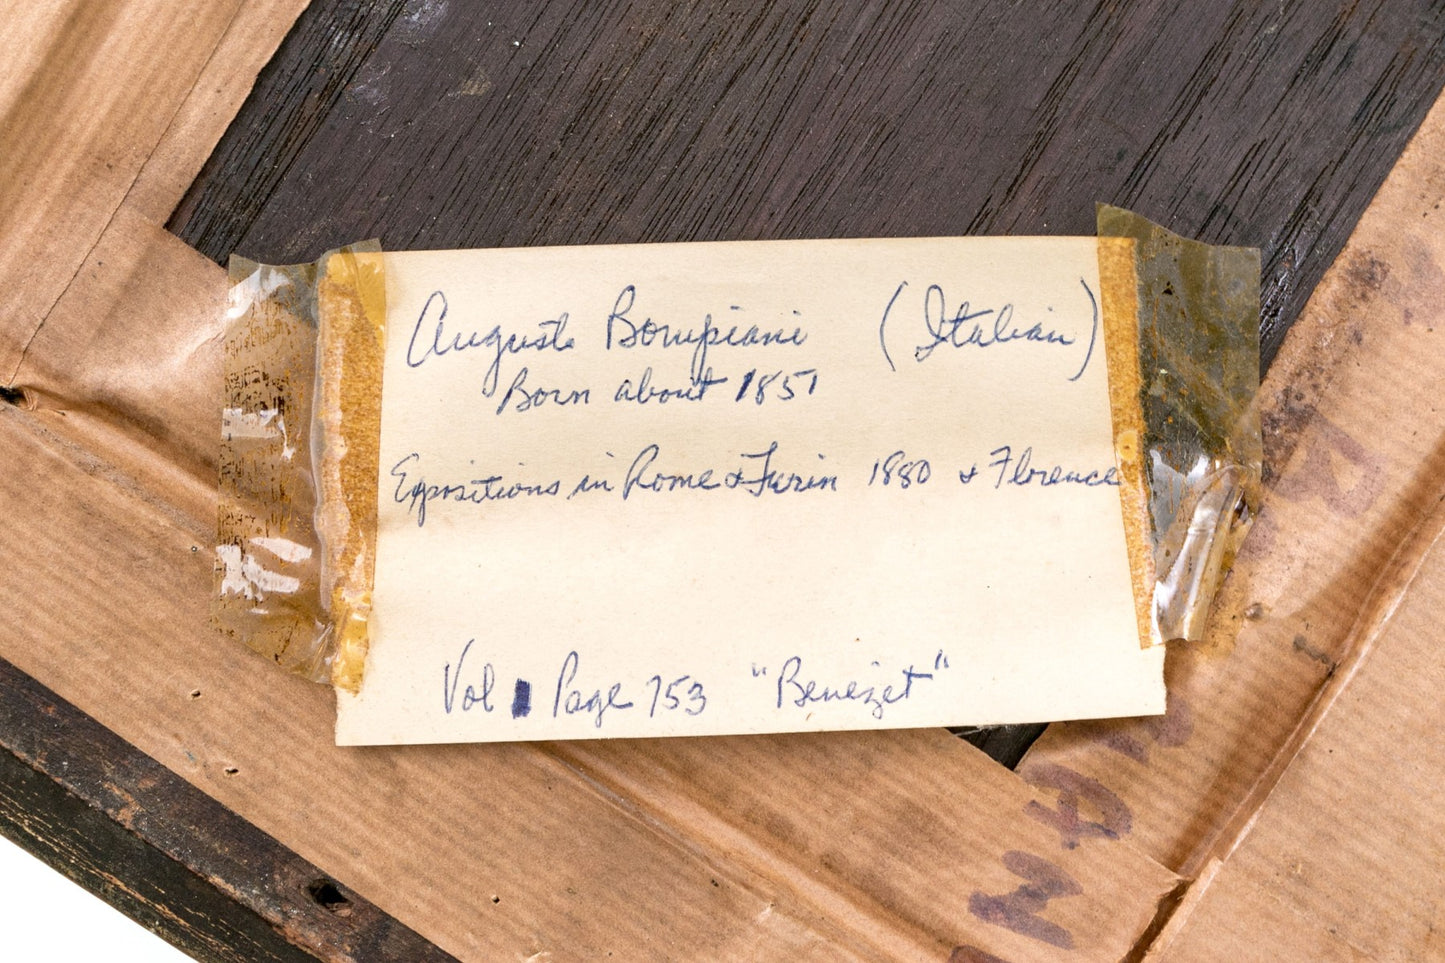 Augusto Bompiani (Italian)
Born about 1851
Expositions in Rome & Turin 1880 & Florence
Vol 1 Page 753 "Benezet"